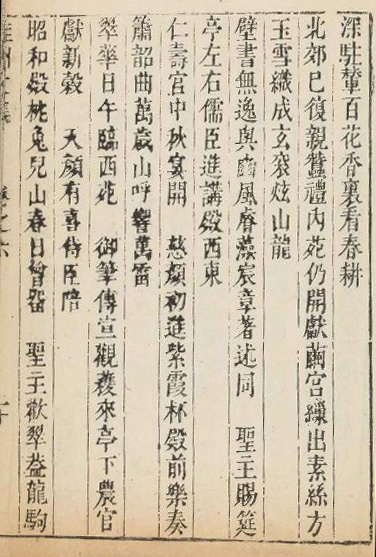 深駐輦百花香裏看春耕
北郊巳復親蠶禮内苑仍開獻繭宮繰出素絲方
玉雪織成玄袞炫山龍
壁書無逸與豳風睿藻宸章著述同　聖主賜筵
亭左右儒臣進講殿西東
仁壽宮中秋宴開　慈顔初進紫霞杯殿前樂奏
簫韶曲萬歲山呼響萬雷
翠華日午臨西苑　御筆傳宣觀穫來亭下農官
獻新穀　天顔有喜侍臣陪
昭和殿桃兔兒山春日曾留　聖主歡翠葢龍駒